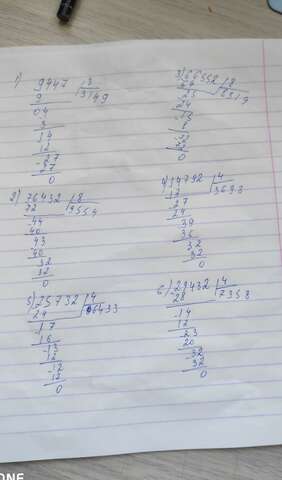 1) 9447 | 3
9 | 3149
04
3
14
12
-27
27
0
3) 66552 | 8
64 | 8319
25
24
-15
8
-72
72
0
2) 76432 | 8
72 | 9554
-44
40
-43
40
-32
32
0
4) 14792 | 4
12 | 3698
-27
24
39
36
32
-32
0
5) 25732 | 4
24 | 6433
-17
16
-13
12
-12
12
0
6) 29432 | 4
-28 | 7358
-14
12
-23
20
-32
32
0
ONE